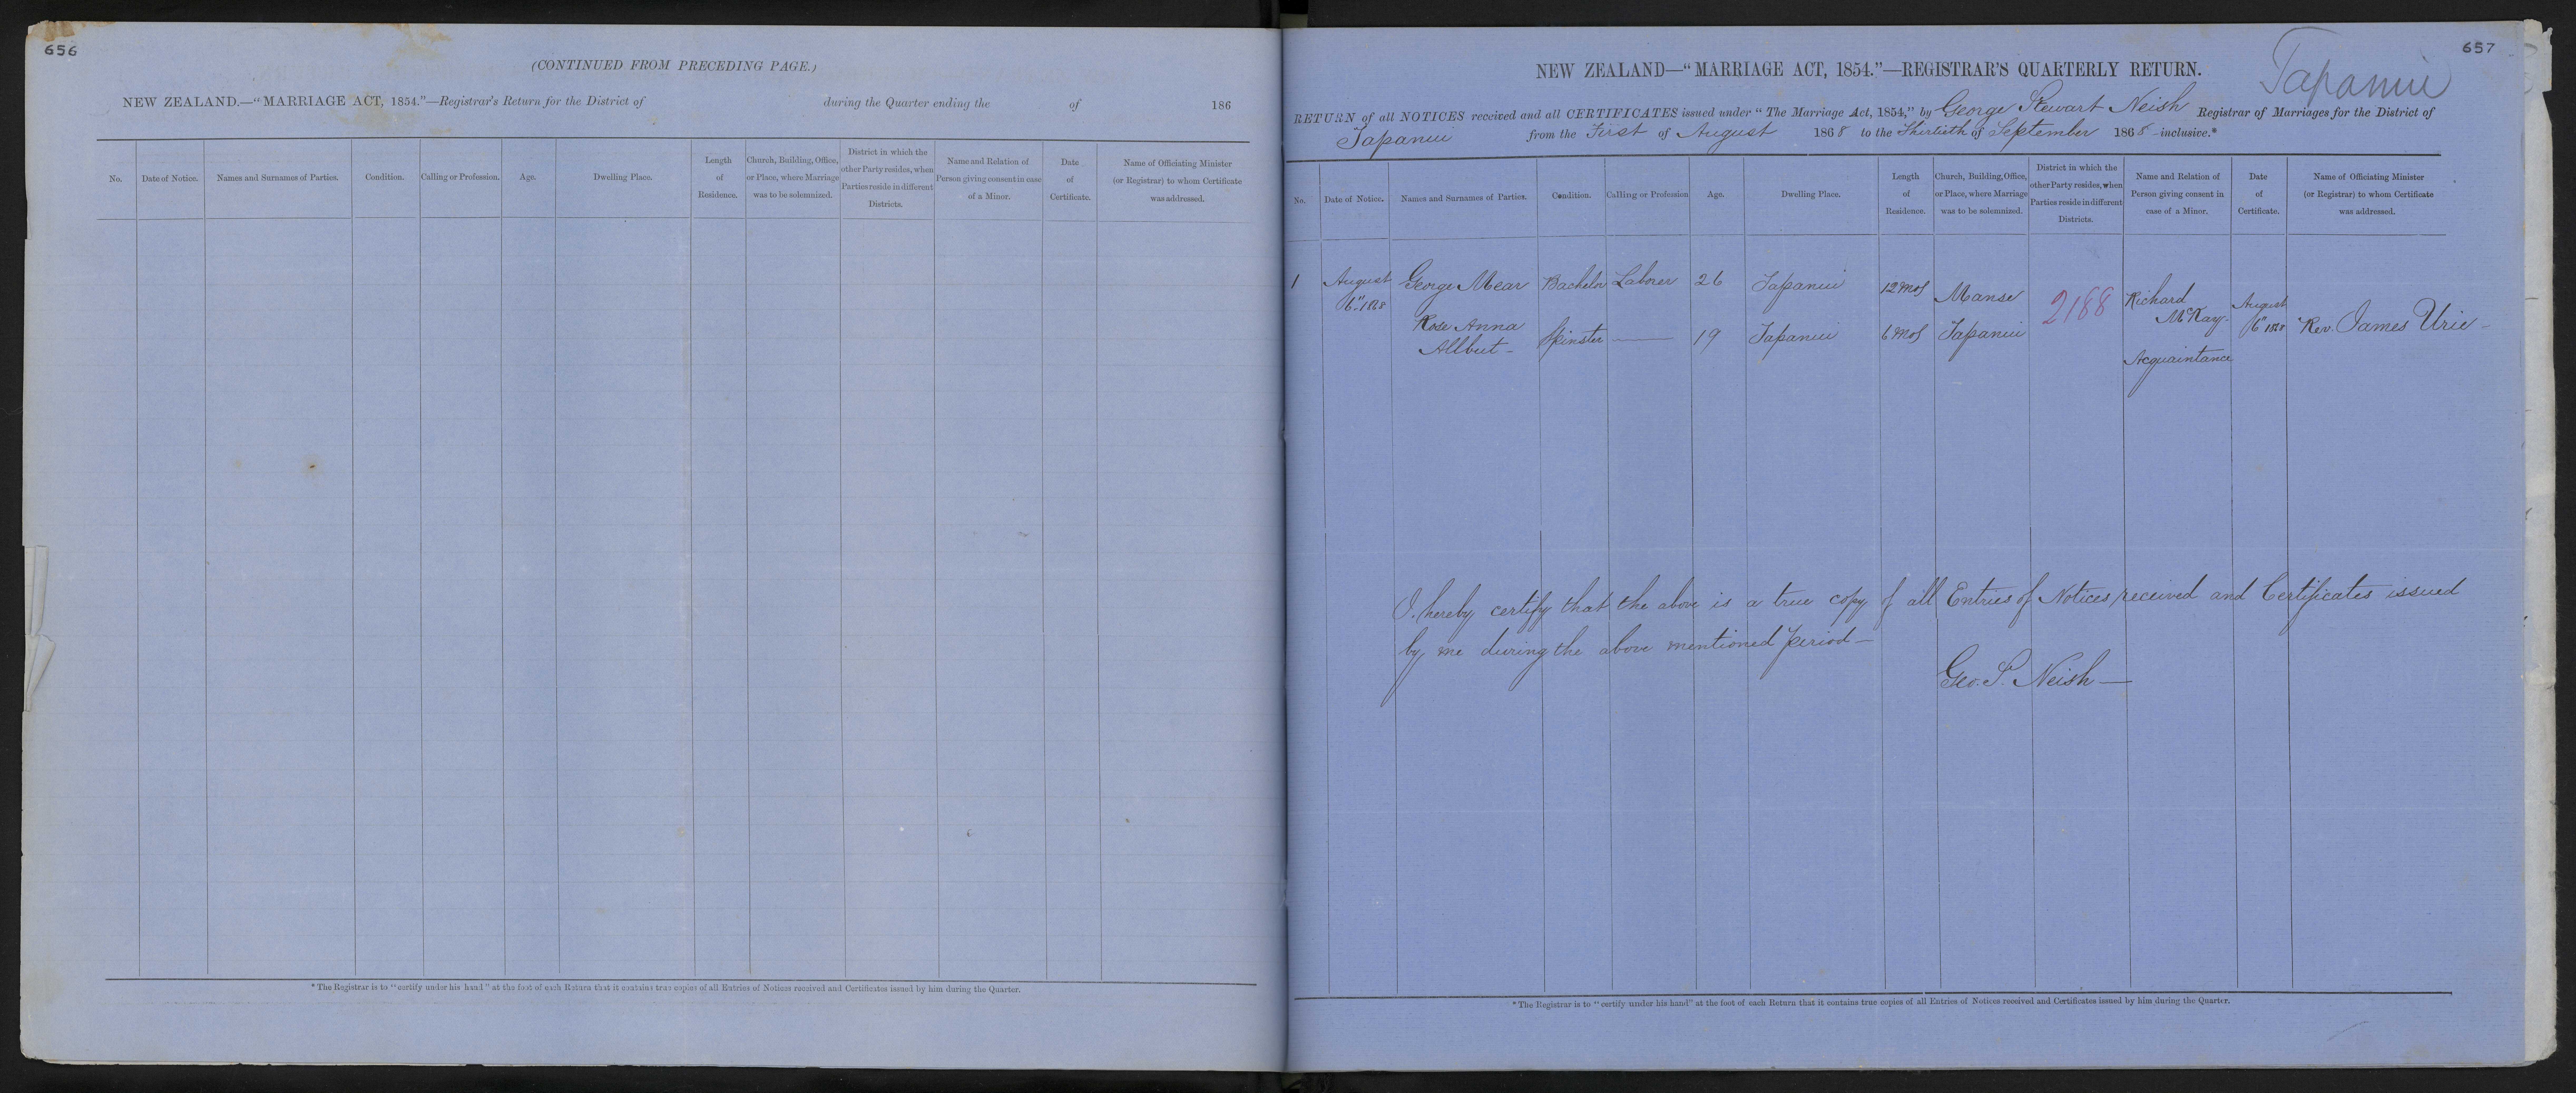 656
(CONTINUED FROM PRECEDING PAGE.)
NEW ZEALAND.—"MARRIAGE ACT, 1854."—Registrar's Return for the District of during the Quarter ending the of 186
No. Date of Notice. Names and Surnames of Parties. Condition. Calling or Profession. Age. Dwelling Place. Length of Residence. Church, Building, Office, or Place, where Marriage was to be solemnized. District in which the other Party resides, when Parties reside in different Districts. Name and Relation of Person giving consent in case of a Minor. Date of Certificate. Name of Officiating Minister (or Registrar) to whom Certificate was addressed.
* The Registrar is to "certify under his hand" at the foot of each Return that it contains true copies of all Entries of Notices received and Certificates issued by him during the Quarter.
657
Tapanui
NEW ZEALAND—"MARRIAGE ACT, 1854."—REGISTRAR'S QUARTERLY RETURN.
RETURN of all NOTICES received and all CERTIFICATES issued under "The Marriage Act, 1854," by George Stewart Neish Registrar of Marriages for the District of
Tapanui from the First of August 1868 to the Thirtieth of September 1868 inclusive.*
No. Date of Notice. Names and Surnames of Parties. Condition. Calling or Profession Age. Dwelling Place. Length of Residence. Church, Building, Office, or Place, where Marriage was to be solemnized. District in which the other Party resides, when Parties reside in different Districts. Name and Relation of Person giving consent in case of a Minor. Date of Certificate. Name of Officiating Minister (or Registrar) to whom Certificate was addressed.
1 August 6" 1868 George Mear Bachelor Laborer 26 Tapanui 12 mos Manse 2188 Richard McKay August 6" 1868 Rev. James Urie
Rose Anna Allbut Spinster — 19 Tapanui 6 mos Tapanui Acquaintance
I hereby certify that the above is a true copy of all Entries of Notices received and Certificates issued
by me during the above mentioned period—
Geo. S. Neish—
* The Registrar is to "certify under his hand" at the foot of each Return that it contains true copies of all Entries of Notices received and Certificates issued by him during the Quarter.